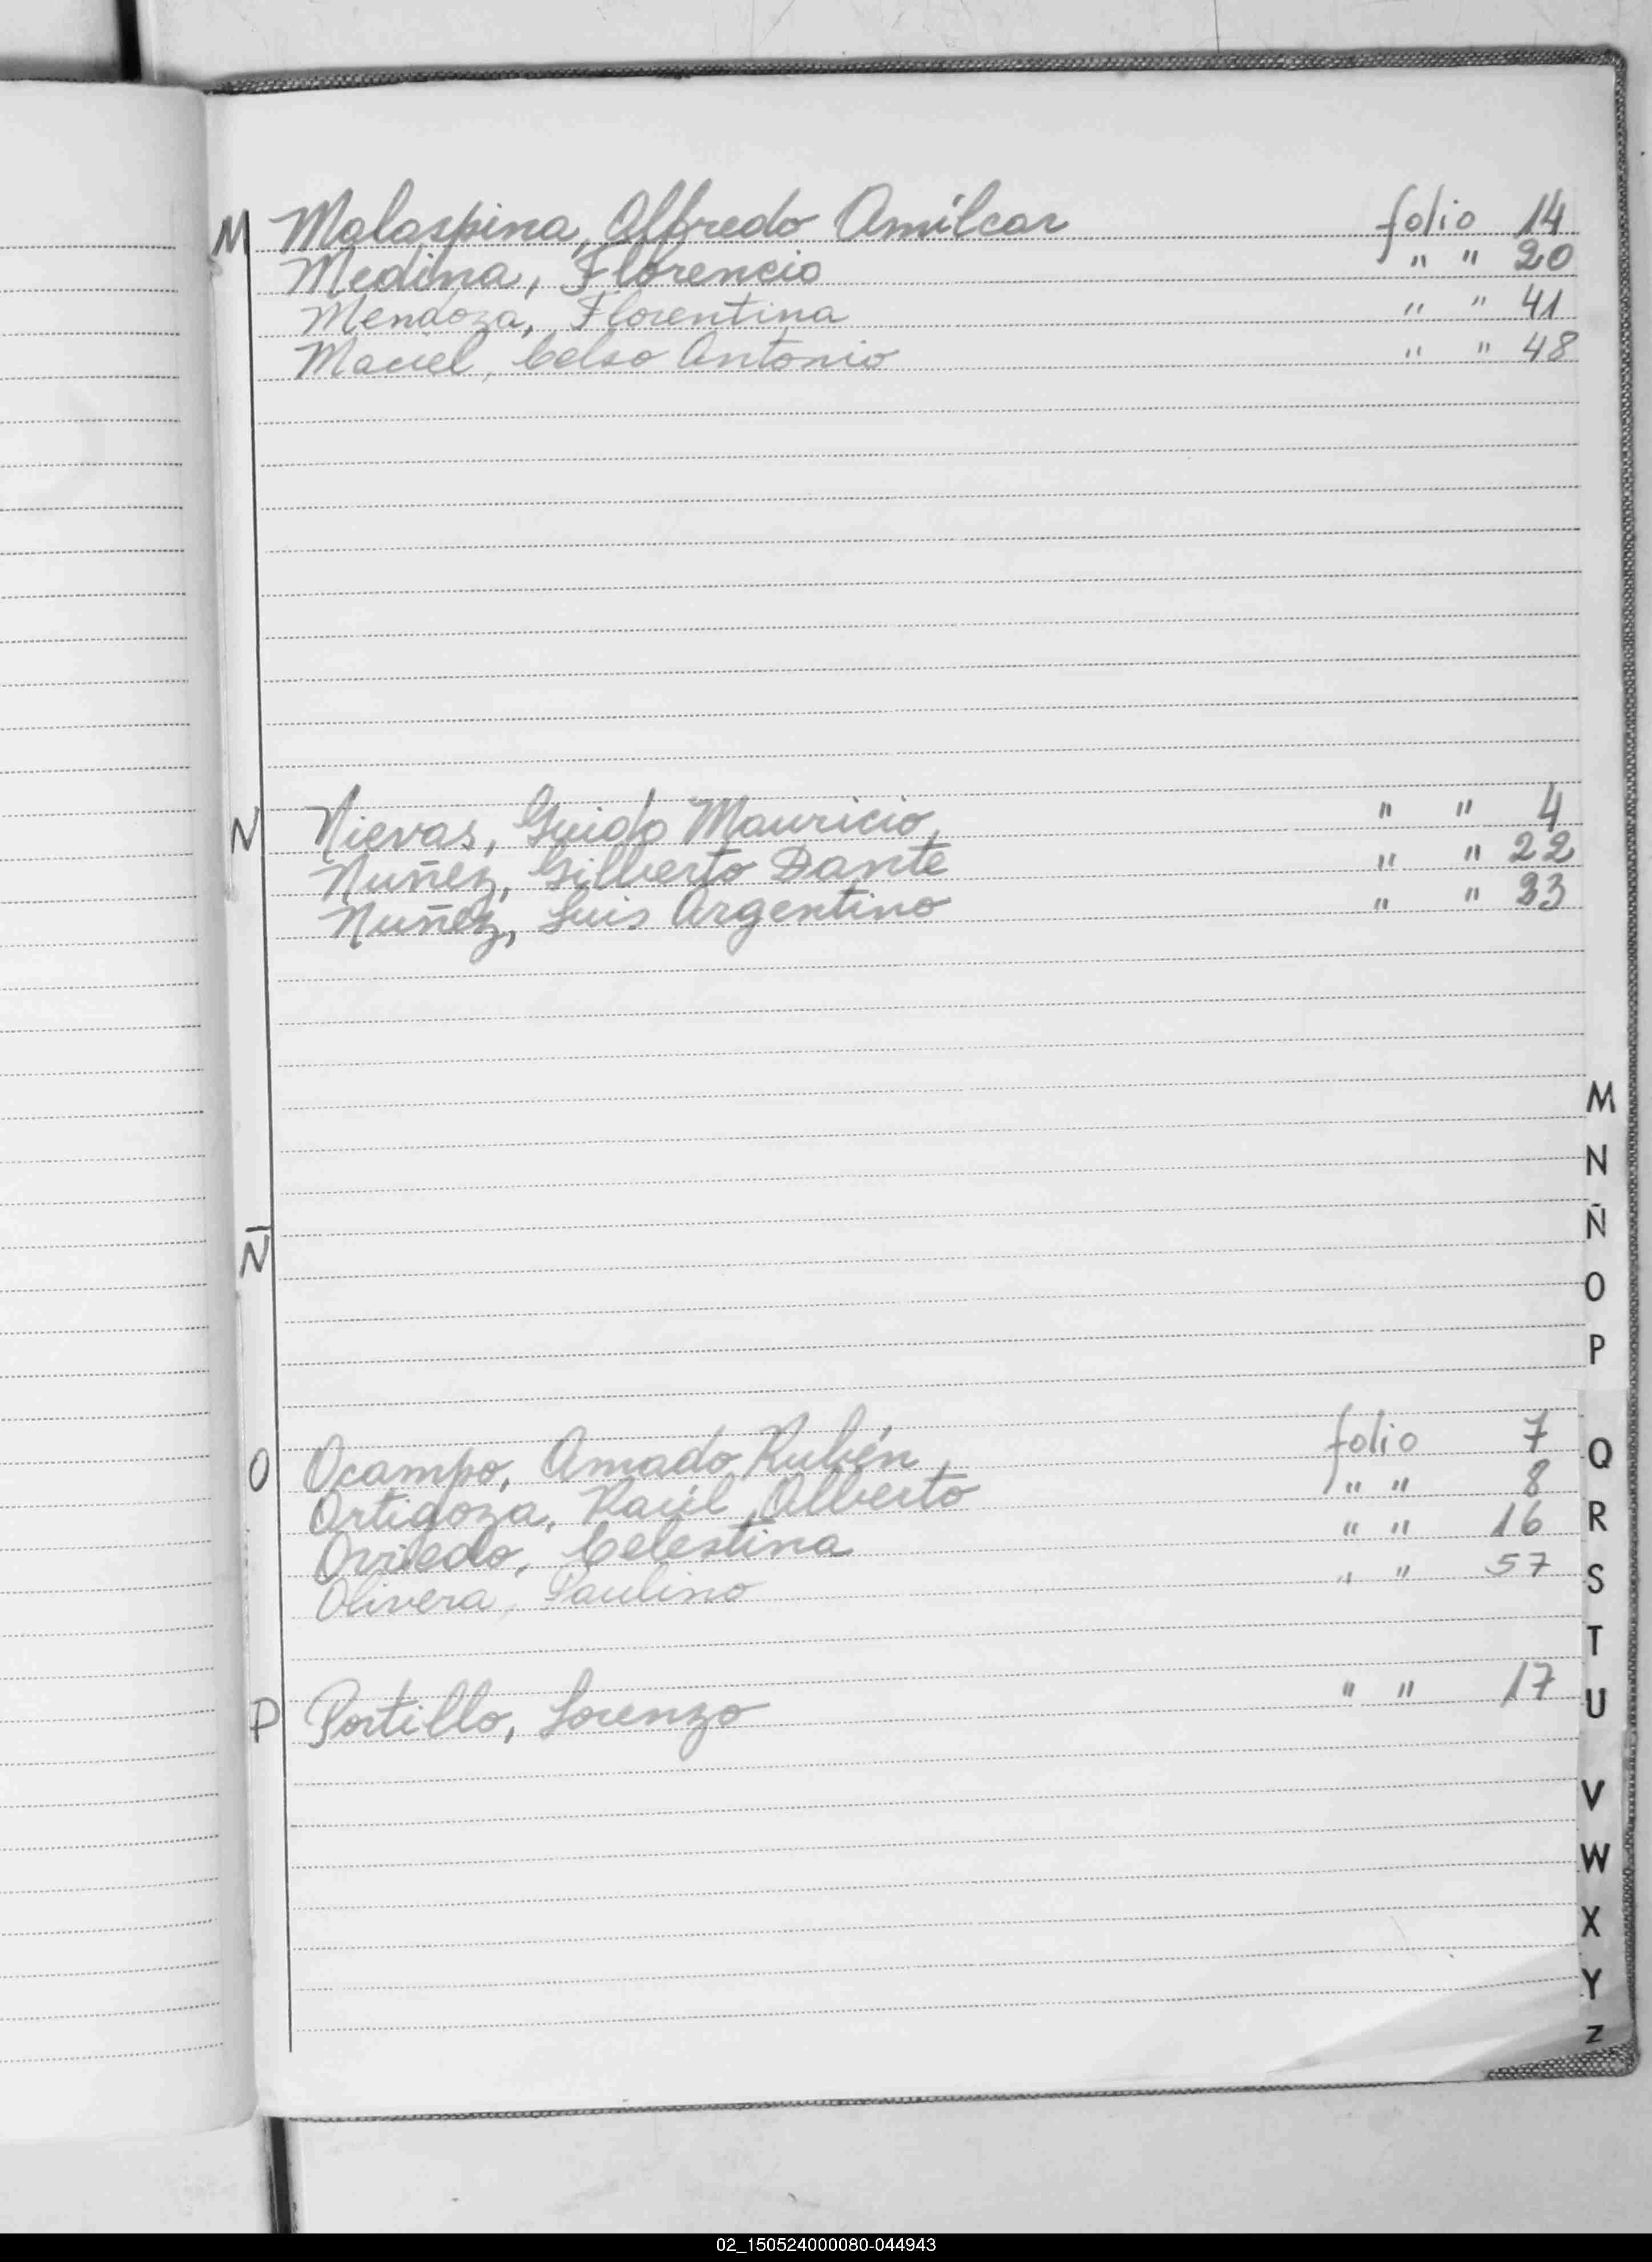 M Malaspina, Alfredo Amílcar folio 14
Medina, Florencio " " 20
Mendoza, Florentina " " 41
Maciel, Celso Antonio " " 48
N Nievas, Guido Mauricio, " " 4
Nuñez, Gilberto Dante " " 22
Nuñez, Luis Argentino " " 33
Ñ
O Ocampo, Amado Rubén, folio 7
Ortigoza, Raúl Alberto " " 8
Oviedo, Celestina " " 16
Olivera, Paulino " " 57
P Portillo, Lorenzo " " 17
M
N
Ñ
O
P
Q
R
S
T
U
V
W
X
Y
Z
02_150524000080-044943